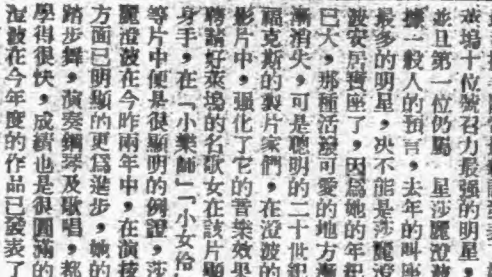 萊塢十位號召力最强的明星，
並且第一位仍屬　星莎麗澄波
據一般人的預言，去年的叫座
最多的明星，决不能是莎麗澄
波安居寶座了，因爲她的年紀
已大，那種活潑可愛的地方漸
漸消失，可是聰明的二十世紀
福克斯的製片家們，在澄波的
影片中，强化了它的音樂效果
聘請好萊塢的名歌女在該片顯
身手，在「小樂師」「小女伶
等片中便是很顯明的例證，莎
麗澄波在今昨兩年中，在演技
方面已明顯的更爲進步，她的
踏步舞，演奏鋼琴及歌唱，都
學得很快，成績也是很圓滿的
澄波在今年度的作品已發表了